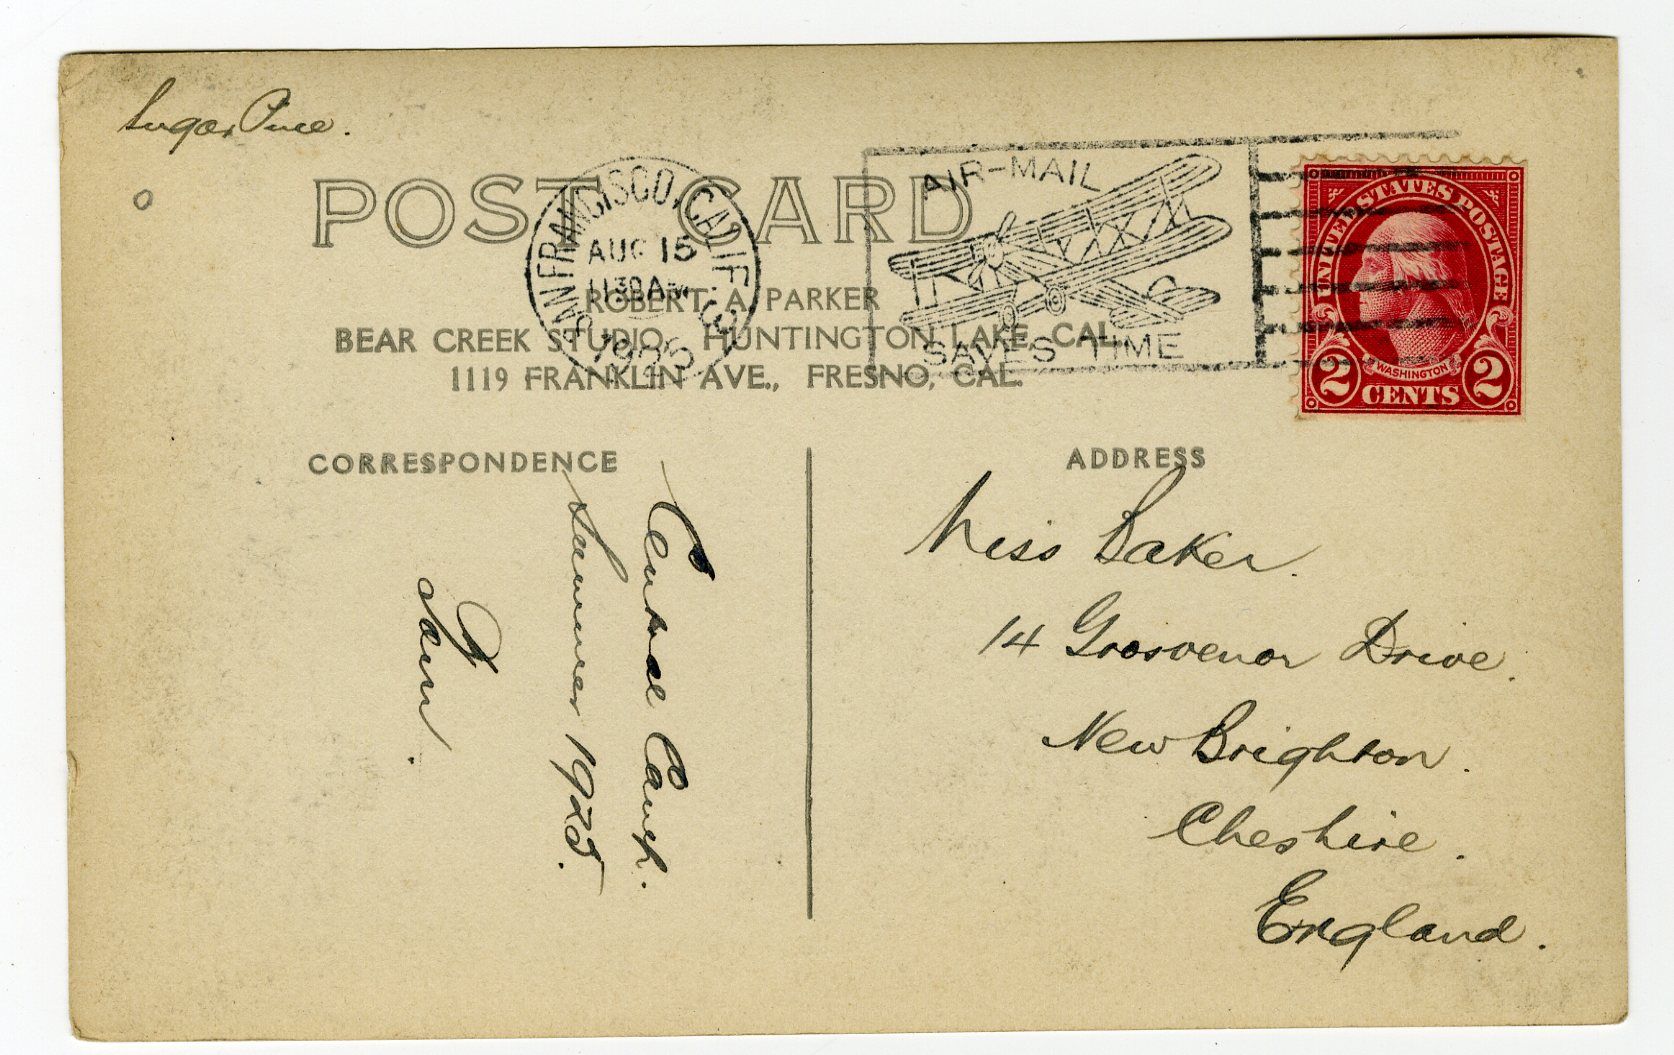 Sugar Pine.
POST CARD
SAN FRANCISCO, CALIF.
AUG 15
1130 AM
1925
AIR-MAIL
SAVES TIME
UNITED STATES POSTAGE
WASHINGTON
2 CENTS 2
ROBERT A. PARKER
BEAR CREEK STUDIO, HUNTINGTON LAKE, CAL.
1119 FRANKLIN AVE., FRESNO, CAL.
CORRESPONDENCE
Central Camp.
Summer 1925.
ADDRESS
Miss Baker.
14 Grosvenor Drive.
New Brighton.
Cheshire.
England.